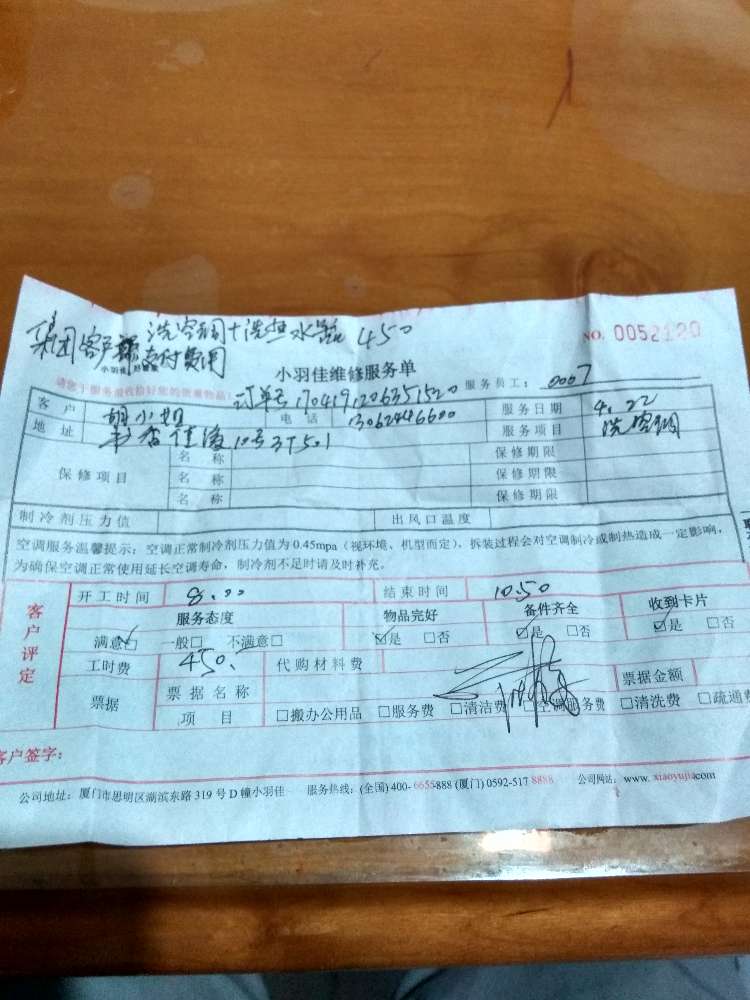 集团客户部 洗空调+洗热水器 450
支付费用
NO. 0052120
小羽佳维修服务单
请您于服务前收拾好您的贵重物品!
订单号 1704191206351520
服务员工: 0007
客户 胡小姐 电话 13062446600 服务日期 4.22
地址 佳海10号3T501 服务项目 洗空调
保修项目 名称 保修期限
名称 保修期限
名称 保修期限
制冷剂压力值 出风口温度
空调服务温馨提示:空调正常制冷剂压力值为0.45mpa(视环境、机型而定),拆装过程会对空调制冷或制热造成一定影响,
为确保空调正常使用延长空调寿命,制冷剂不足时请及时补充。
客户评定
开工时间 8.00 结束时间 10.50
服务态度 物品完好 备件齐全 收到卡片
满意☑ 一般□ 不满意□ ☑是 □否 ☑是 □否 ☑是 □否
工时费 450. 代购材料费
票据 票据名称 票据金额
项目 □搬办公用品 □服务费 □清洁费 □空调服务费 □清洗费 □疏通费
客户签字:
公司地址:厦门市思明区湖滨东路319号D幢小羽佳 服务热线:(全国)400-6655888 (厦门)0592-5178888 公司网站:www.xiaoyujia.com